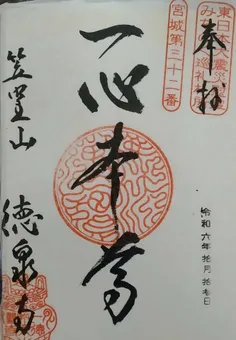 東日本大震災
み
巡礼
宮城第三十二番
奉拝
一心本尊
令和六年拾月拾日
徳泉寺